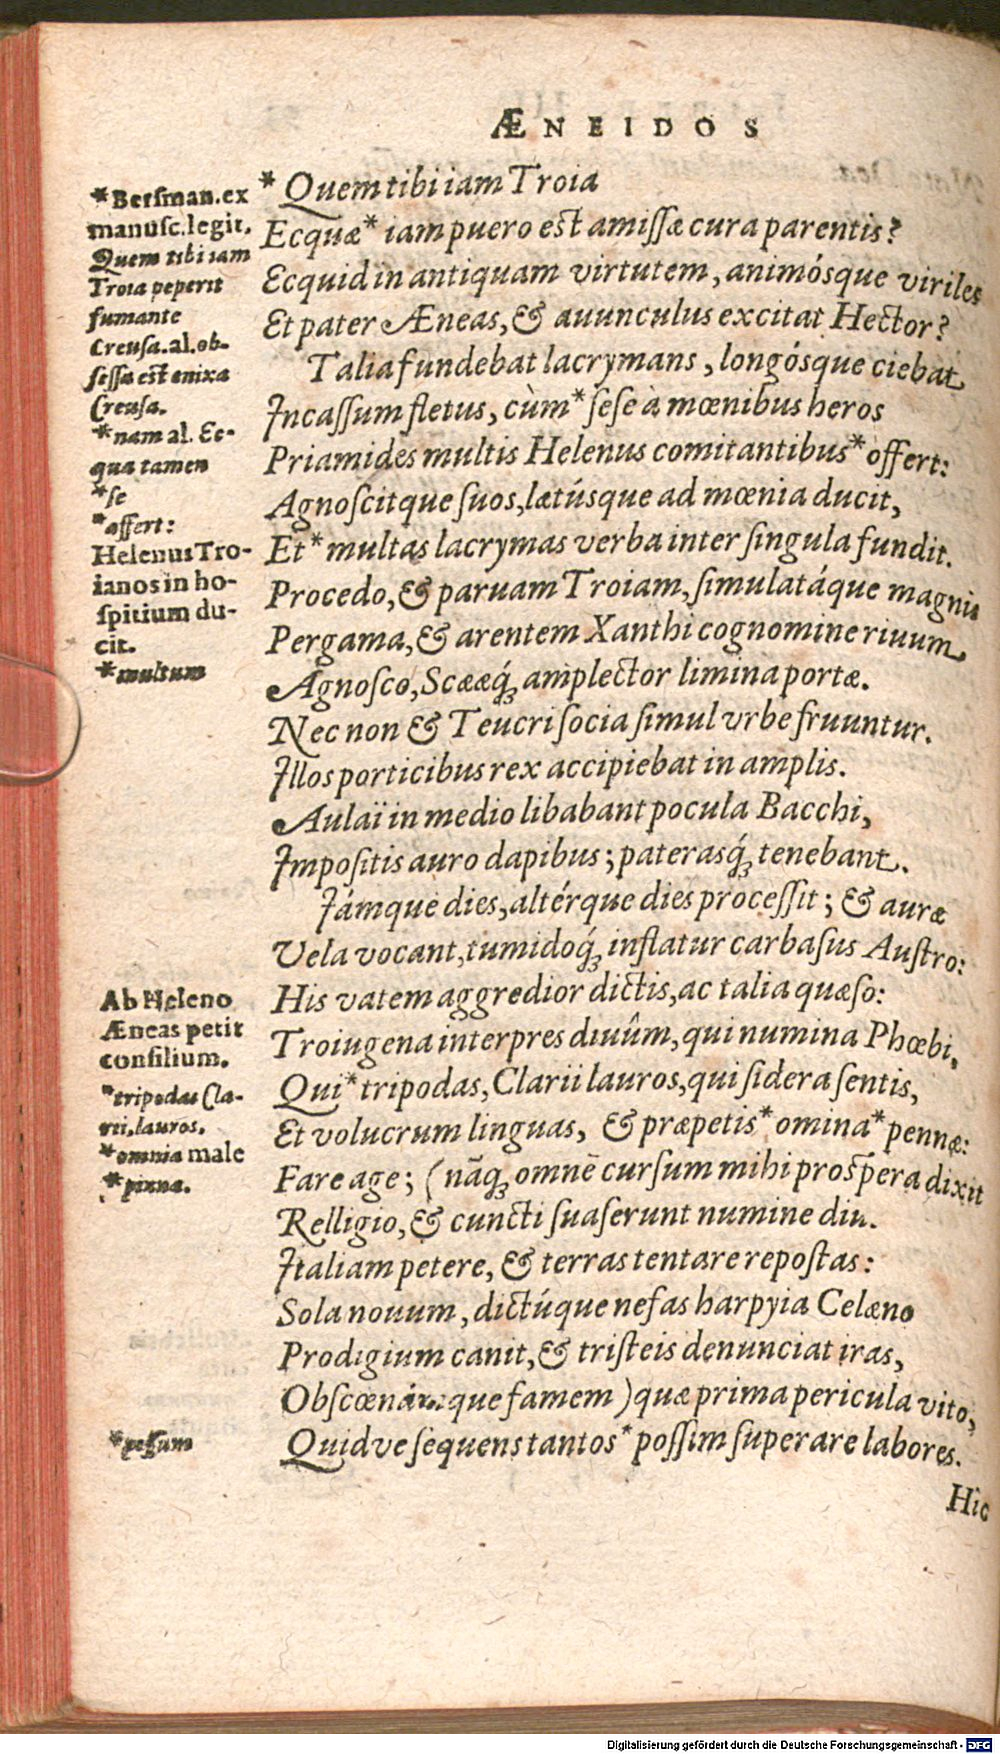 ÆNEIDOS
*Bersman.ex
manusc.legit.
Quem tibi iam
Troia peperit
fumante
Creusa.al.ob-
sessa est enixa
Creusa.
*nam al. Ec-
qua tamen
*se
*affert:
Helenus Tro-
ianos in ho-
spitium du-
cit.
*multum
* Quem tibi iam Troia
Ecquæ* iam puero est amissæ cura parentis?
Ecquid in antiquam virtutem, animósque viriles
Et pater Æneas, & auunculus excitat Hector?
Talia fundebat lacrymans, longósque ciebat
Incassum fletus, cùm* sese à mœnibus heros
Priamides multis Helenus comitantibus* offert:
Agnoscitque suos, lætúsque ad mœnia ducit,
Et* multas lacrymas verba inter singula fundit.
Procedo, & paruam Troiam, simulatáque magnis
Pergama, & arentem Xanthi cognomine riuum,
Agnosco, Scææq́; amplector limina portæ.
Nec non & Teucri socia simul vrbe fruuntur.
Illos porticibus rex accipiebat in amplis.
Aulaï in medio libabant pocula Bacchi,
Impositis auro dapibus; paterasq́; tenebant.
Iámque dies, altérque dies processit; & auræ
Vela vocant, tumidoq́; inflatur carbasus Austro:
His vatem aggredior dictis, ac talia quæso:
Troiugena interpres diuûm, qui numina Phœbi,
Qui* tripodas, Clarii lauros, qui sidera sentis,
Et volucrum linguas, & præpetis* omina* pennæ:
Fare age; (nãq; omnē cursum mihi prospera dixit
Relligio, & cuncti suaserunt numine diui.
Italiam petere, & terras tentare repostas:
Sola nouum, dictúque nefas harpyia Celæno
Prodigium canit, & tristeis denunciat iras,
Obscœnámque famem) quæ prima pericula vito,
Quidve sequens tantos* possim superare labores.
Ab Heleno
Æneas petit
consilium.
*tripodas Cla-
rii, lauros.
*omnia male
*pinna.
*possum
Hîc
Digitalisierung gefördert durch die Deutsche Forschungsgemeinschaft - DFG